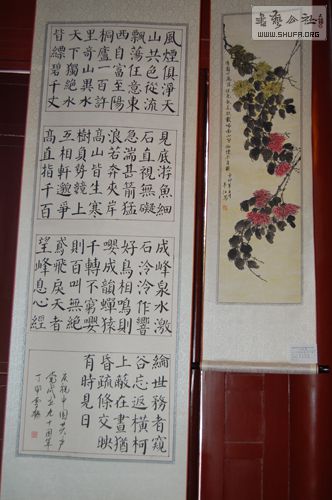 風煙俱淨天
山共色從流
飄蕩任意東
西自富至陽
桐廬一百許
里奇山異水
天下獨絕水
皆縹碧千丈
見底游魚細
石直視無礙
急湍甚箭猛
浪若奔夾岸
高山皆生寒
樹負勢競上
互相軒邈爭
高直指千百
成峰泉水激
石泠泠作響
好鳥相鳴嚶
嚶成韻蟬則
千轉不窮猿
則百叫無絕
鳶飛戾天者
望峰息心經
綸世務者窺
谷忘返橫柯
上蔽在晝猶
昏疏條交映
有時見日
慶祝中國共产
黨成立九十周年
WWW.SHUFA.ORG